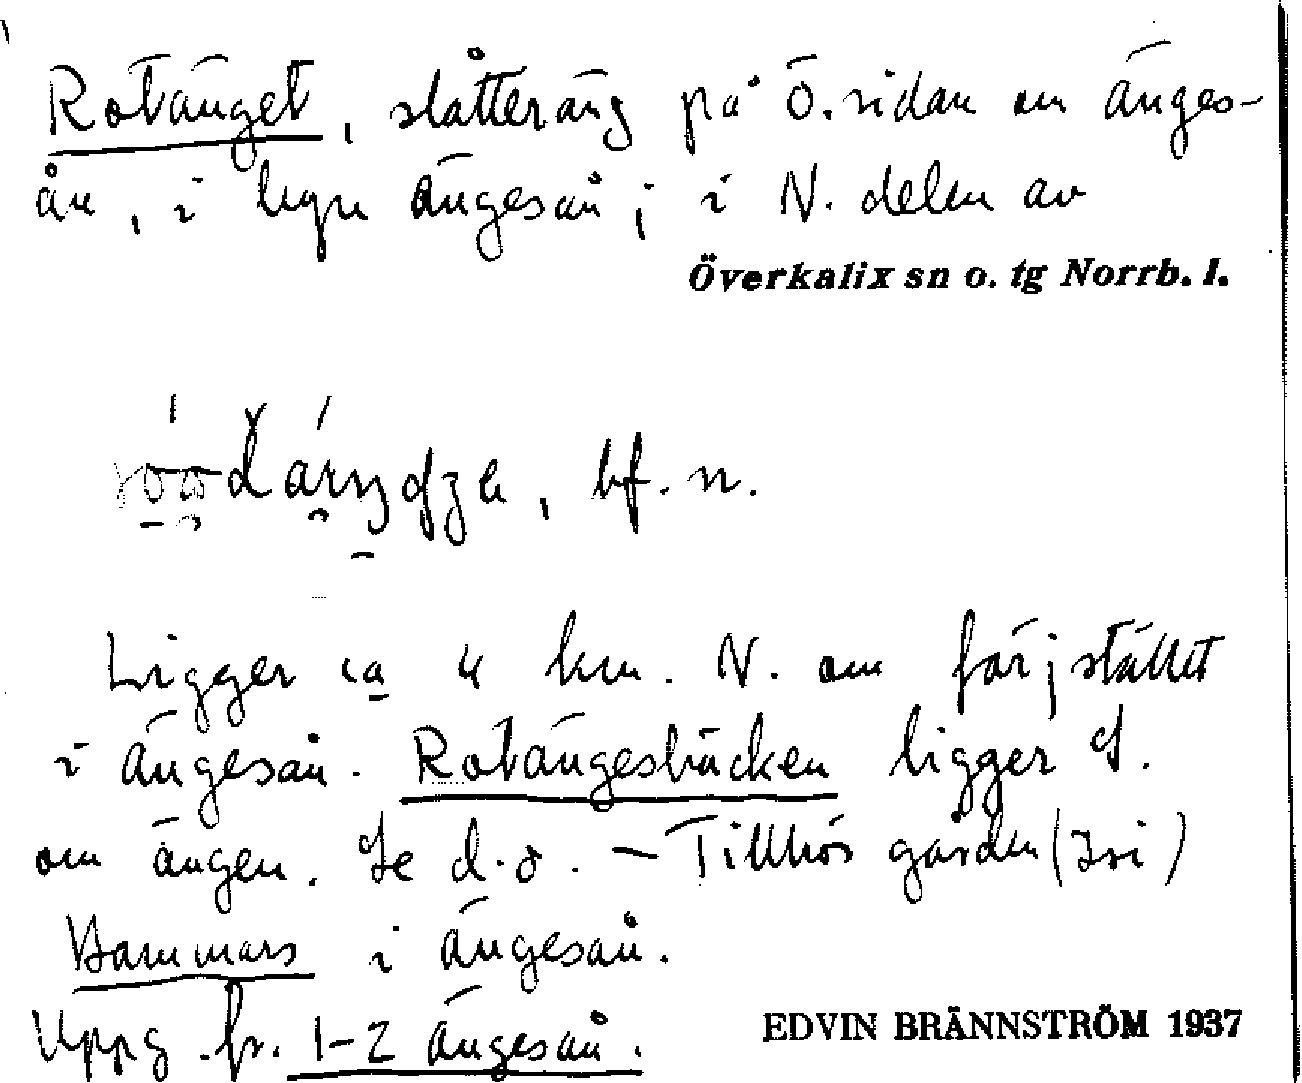 Rotänget, slåtteräng på ö. sidan om änges-
ån, i byn Ängesån; i N. delen av
Överkalix sn o. tg Norrb. l.
bf. n.
Ligger ca 4 km. N. om färjstället
i Ängesån. Rotängesbäcken ligger S.
om ängen. Se d. o. – Tillhör gården
Hammars i Ängesån.
Uppg. fr. 1-2 Ängesån.
EDVIN BRÄNNSTRÖM 1937